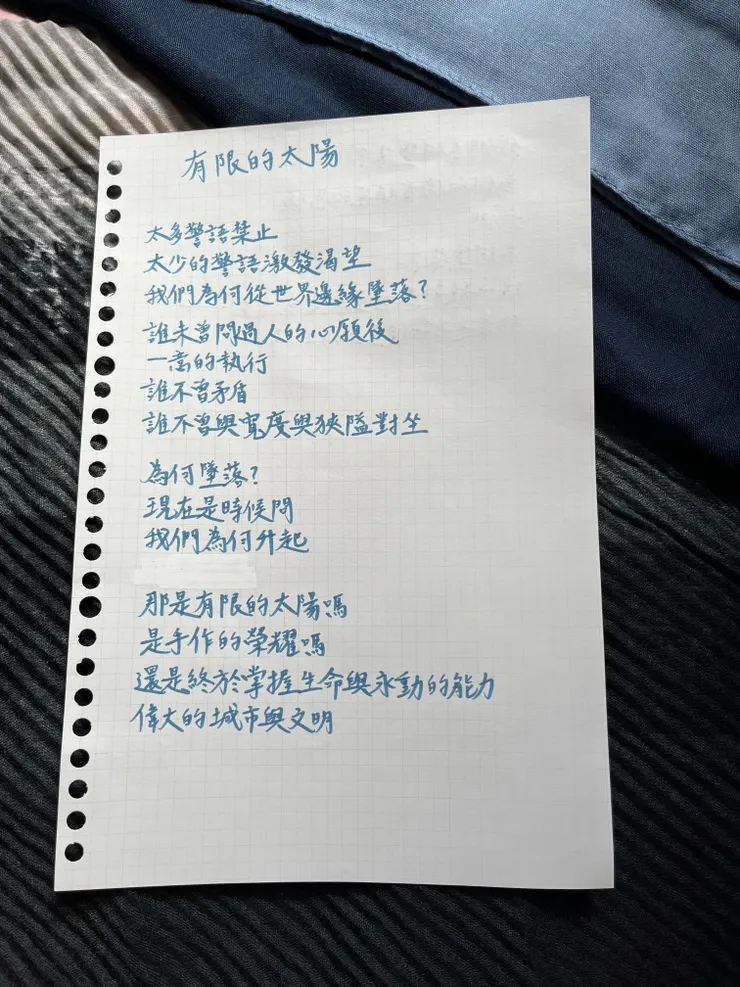 有限的太陽
太多警語禁止
太少的警語激發渴望
我們為何從世界邊緣墜落？
誰未曾問過人的心願後
一意的執行
誰不曾矛盾
誰不曾與寬度與狹隘對坐
為何墜落？
現在是時候問
我們為何升起
那是有限的太陽嗎
是手作的榮耀嗎
還是終於掌握生命與永動的能力
偉大的城市與文明